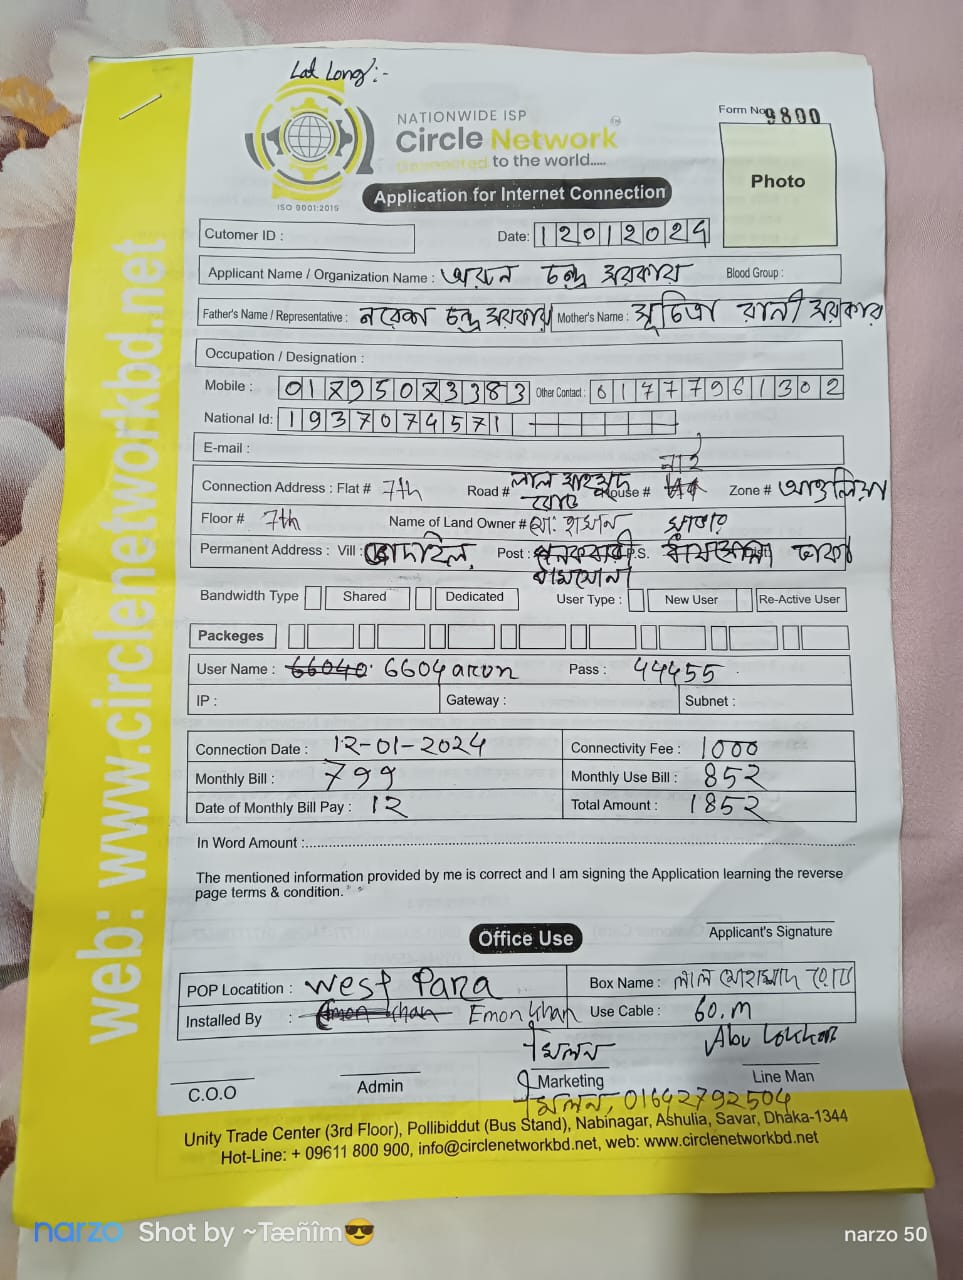 Lat Long:-
NATIONWIDE ISP
Circle Network
Connected to the world.....
ISO 9001:2015
Form No 9800
Photo
Application for Internet Connection
Cutomer ID :
Date: 12012024
Applicant Name / Organization Name : অরুন চন্দ্র সরকার Blood Group :
Father's Name / Representative : নরেশ চন্দ্র সরকার Mother's Name : সুচিত্রা রানী সরকার
Occupation / Designation :
Mobile : Other Contact : 01777961302
National Id: 1937074571
E-mail :
নাই
Connection Address : Flat # 7th Road # লাল মাহমুদ রোড House # Zone # আশুলিয়া
Floor # 7th Name of Land Owner # মো: হাসান
Permanent Address : Vill : Post : P.S. ঢাকা
Bandwidth Type Shared Dedicated User Type : New User Re-Active User
Packeges
User Name : 66040 6604arun Pass : 44455
IP : Gateway : Subnet :
Connection Date : 12-01-2024 Connectivity Fee : 1000
Monthly Bill : 799 Monthly Use Bill : 852
Date of Monthly Bill Pay : 12 Total Amount : 1852
In Word Amount :
The mentioned information provided by me is correct and I am signing the Application learning the reverse
page terms & condition.
Applicant's Signature
Office Use
POP Locatition : West Para Box Name : লাল মোহাম্মাদ রোড
Installed By : Emon khan Emon khan Use Cable : 60.m
মিলন
C.O.O Admin Marketing Line Man
মিলন, 01642792504
Unity Trade Center (3rd Floor), Pollibiddut (Bus Stand), Nabinagar, Ashulia, Savar, Dhaka-1344
Hot-Line: + 09611 800 900, info@circlenetworkbd.net, web: www.circlenetworkbd.net
web: www.circlenetworkbd.net
narzo Shot by ~Tæñîm😎 narzo 50